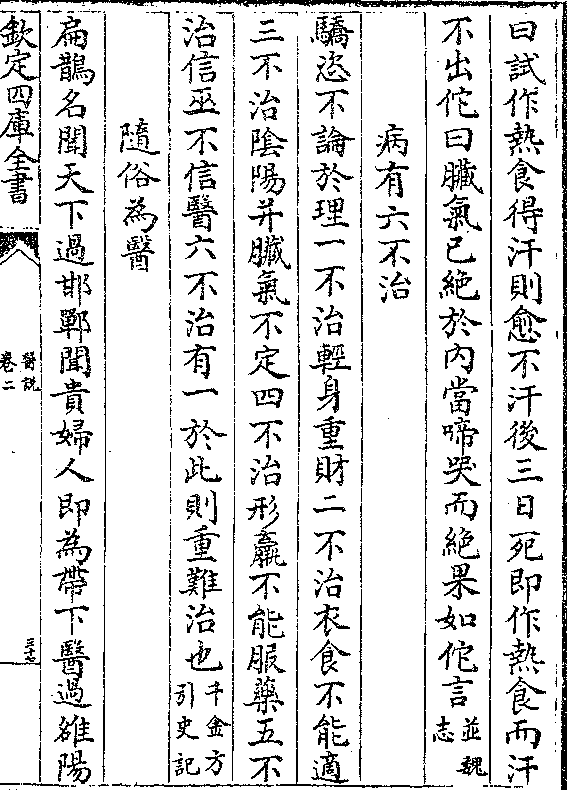 曰試作熱食得汗則愈不汗後三日死即作熱食而汗
不出佗曰臟氣已絶於内當啼哭而絶果如佗言並魏志
病有六不治
驕恣不論於理一不治輕身重財二不治衣食不能適
三不治陰陽并臟氣不定四不治形羸不能服藥五不
治信巫不信醫六不治有一於此則重難治也千金方引史記
隨俗為醫
扁鵲名聞天下過邯鄲聞貴婦人即為帶下醫過雒陽
欽定四庫全書
醫説
卷二
三十七